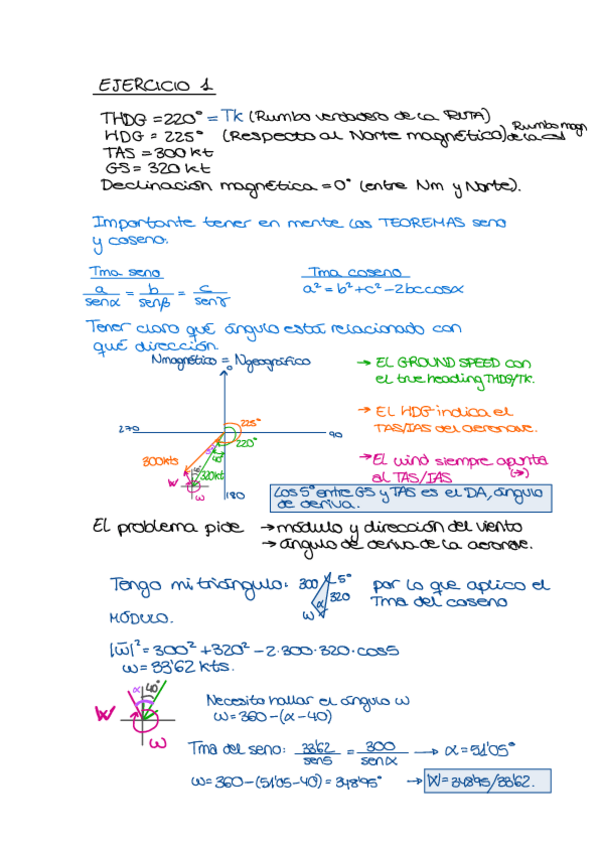 EJERCICIO 1
THDG = 220° = Tk (Rumbo verdadero de la RUTA)
HDG = 225° (Respecto al Norte magnético) Rumbo magn de la
TAS = 300 kt
GS = 320 kt
Declinación magnética = 0° (entre Nm y Norte).
Importante tener en mente los TEOREMAS seno
y coseno.
Tma seno
a/senα = b/senβ = c/senγ
Tma coseno
a² = b² + c² - 2bc cosα
Tener claro qué ángulo está relacionado con
qué dirección.
Nmagnético = Ngeográfico
0
270
90
180
225°
220°
300kts
320kt
W
ω
→ EL GROUND SPEED con
el true heading THDG/Tk.
→ EL HDG indica el
TAS/IAS del aeronave.
→ El wind siempre apunta
al TAS/IAS (→)
Los 5° entre GS y TAS es el DA, ángulo
de deriva.
El problema pide → módulo y dirección del viento
→ ángulo de deriva de la aeronave.
Tengo mi triángulo: 300 5° 320 α ω por lo que aplico el
Tma del coseno
MÓDULO.
|w̄|² = 300² + 320² - 2·300·320·cos5
ω = 33'62 kts.
α 40°
W
ω
Necesito hallar el ángulo ω
ω = 360 - (α - 40)
Tma del seno: 33'62/sen5 = 300/senα → α = 51'05°
ω = 360 - (51'05 - 40) = 348'95° → W = 348'95/33'62.